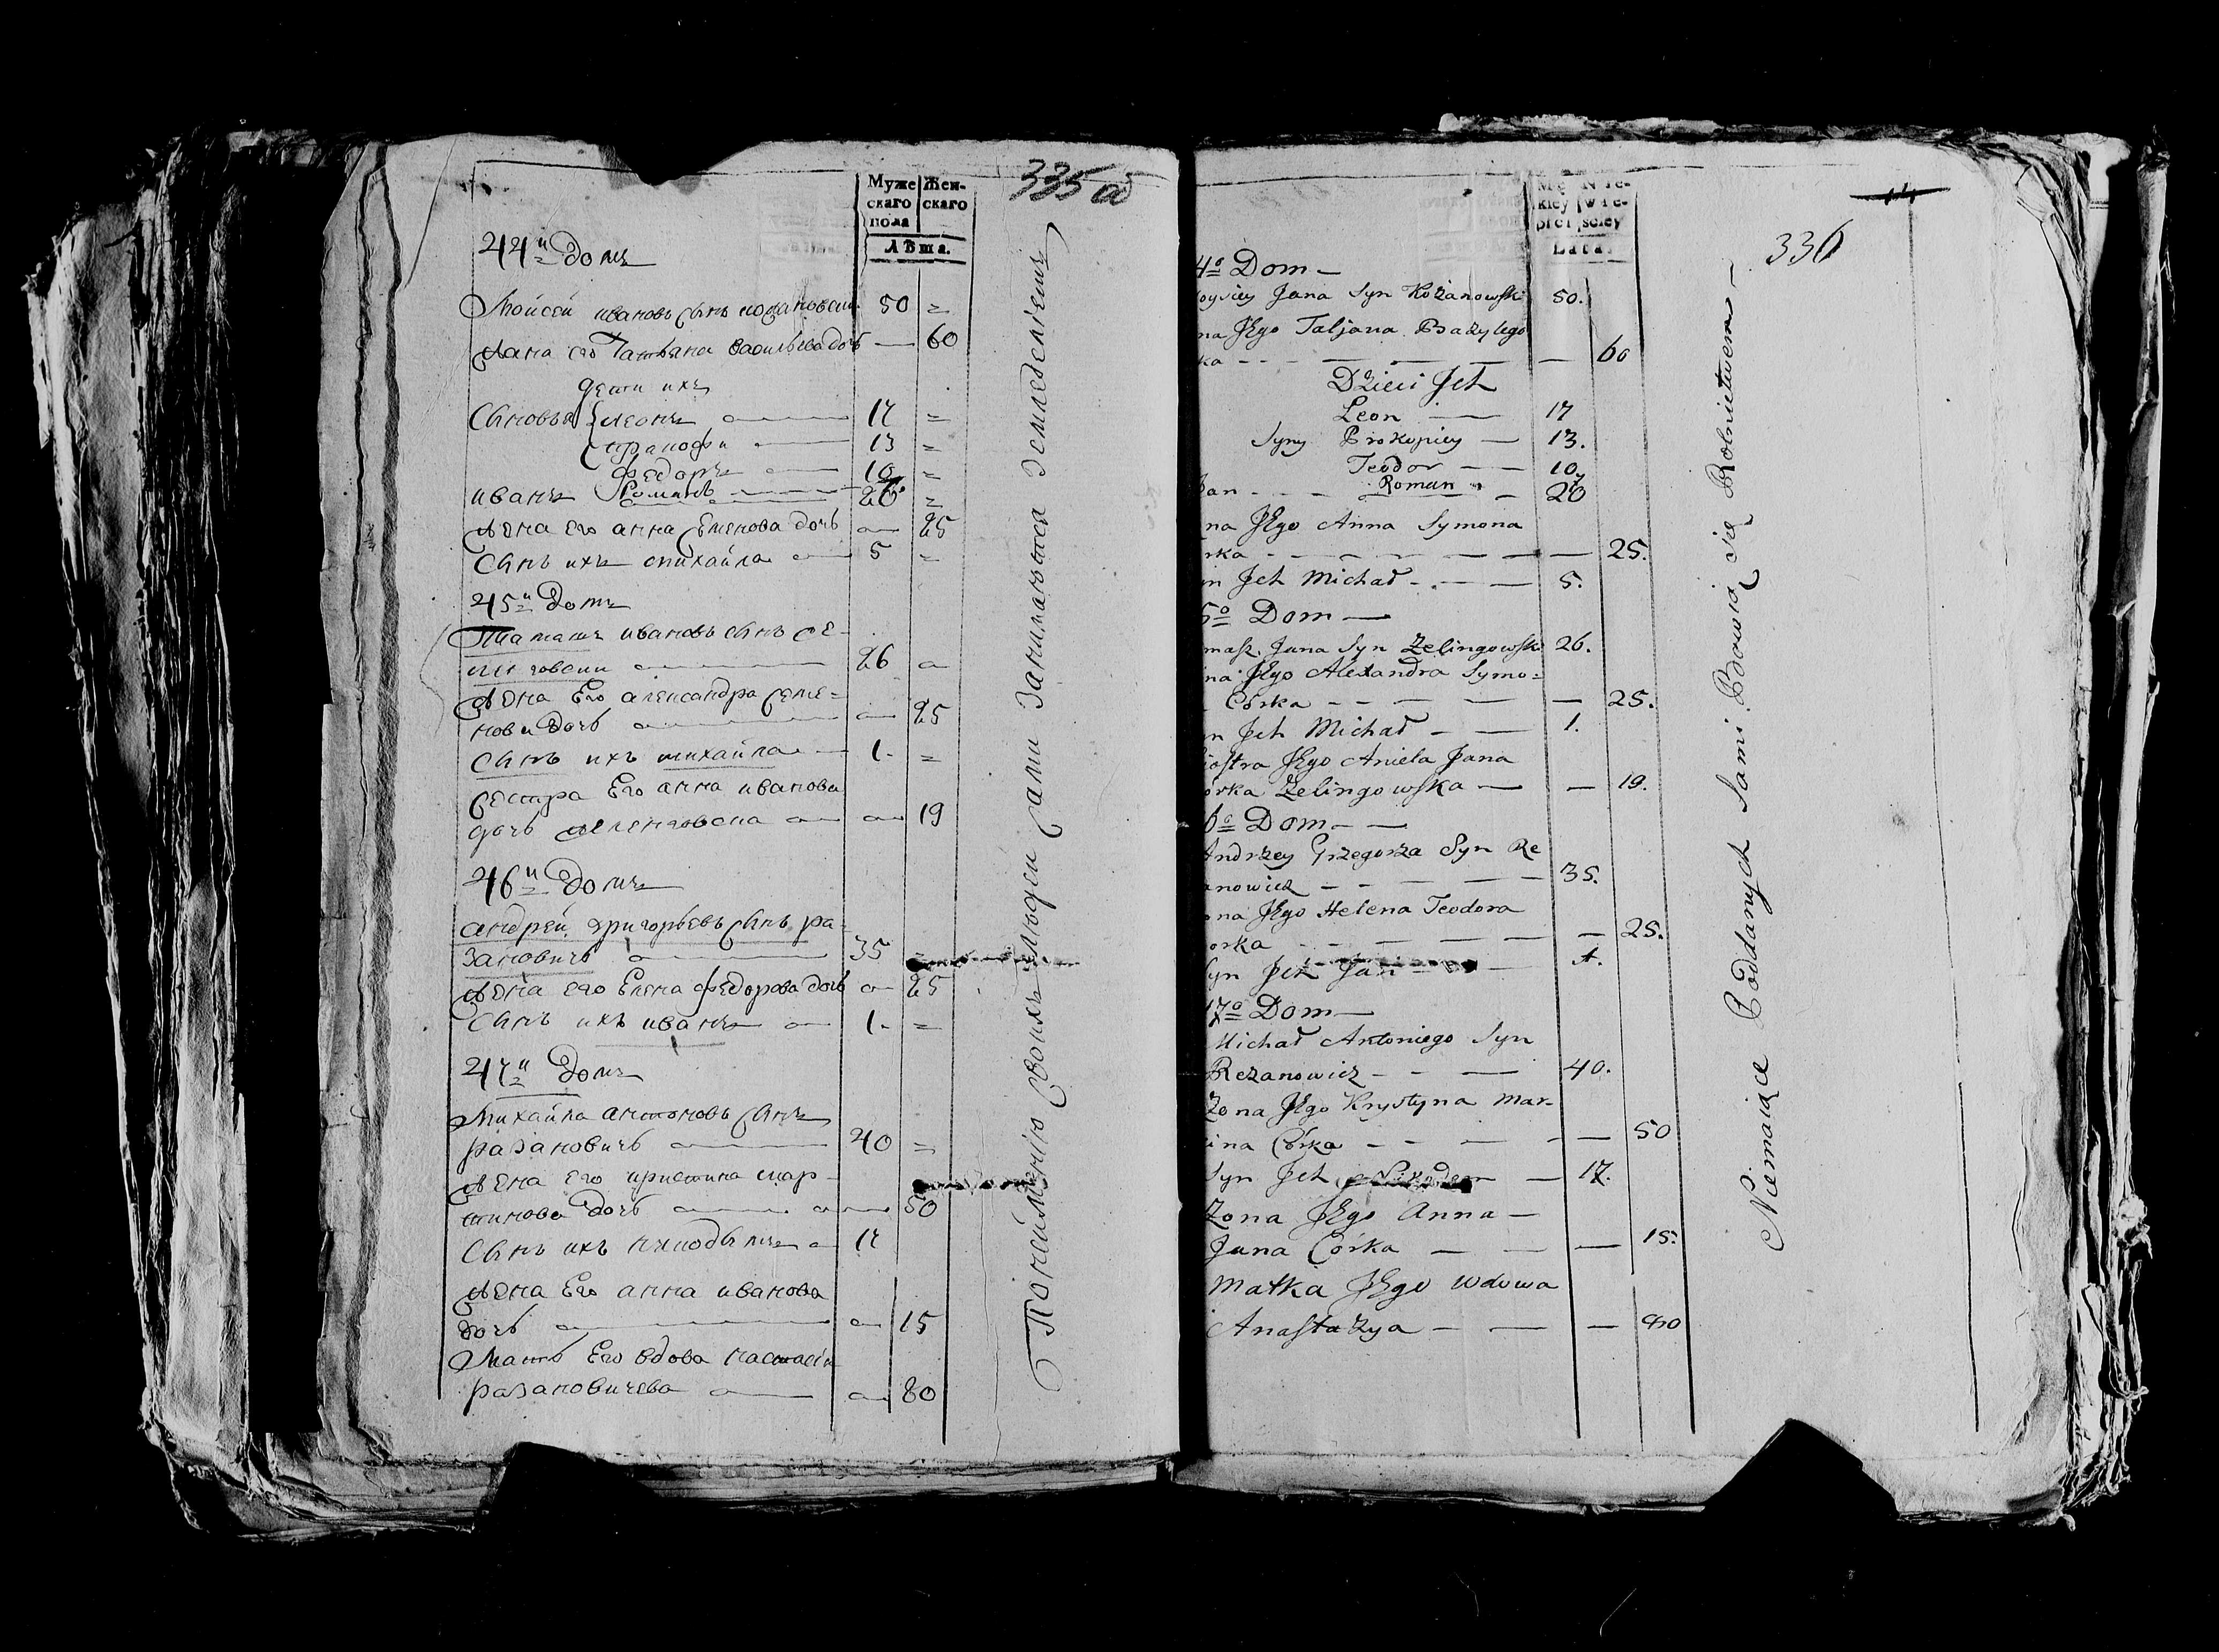 335 об
Муже
скаго
пола
Жен-
скаго
Лѣта.
44й домъ
Мойсей ивановъ сынъ кожановски 50 =
жана его Татьяна васильева дочь — 60
дети ихъ
Сыновья леонъ — 17 =
прапофи — 13 =
федоръ — 10 =
Романъ —
иванъ — 26 =
жена его анна семенова дочь — 25
Сынъ ихъ михайла — 5 =
45й домъ
Тамашъ ивановъ сынъ
— 26 —
жена Его александра семе=
нова дочь — — 25
Сынъ ихъ михайла — 1. =
сестра Его анна иванова
дочь — — 19
46й домъ
андрей григорьевъ сынъ ра-
зановичь — 35 =
жена его Елена федорова дочь — 25
Сынъ ихъ иванъ — 1. =
47й домъ
Михайла антоновъ сынъ
разановичь — 40 =
жена его кристина мар-
тинова дочь — — 50
Сынъ ихъ — 17
жена Его анна иванова
дочь — — 15
Мать Его вдова настасія
разановичева — — 80
Понеимѣнію своихъ людеи сами занимаютса земледеліемъ
336
Mę
kiey
płci
Nie-
wie-
sciey
Lata.
4o Dom —
oysiey Jana Syn Kożanowski 50.
na Jego Taljana Bazylego
ka — — 60
Dzieci Jch
Leon — 17
Syny Prokopiey — 13.
Teodor — 10
Roman 7
Jan — 26
na Jego Anna Symona
rka — — 25.
n Jch Michał — 5.
5o Dom —
masz Jana Syn Zelingowski 26.
na Jego Alexandra Symo=
Córka — — 25.
n Jch Michał — 1.
iostra Jego Aniela Jana
orka Zelingowska — — 19.
6o Dom —
Andrzey Grzegorza Syn Re
anowicz — 35.
ona Jego Helena Teodora
orka — — 25.
Syn Jch Jan — 1.
17o Dom —
Michał Antoniego Syn
Rezanowicz — 40.
Zona Jego Krystyna Mar-
cina Córka — — 50
Syn Jch Nikodem — 17.
Zona Jego Anna —
Jana Córka — — 15.
Matka Jego wdowa
Anastazya — — 80
Niemaiąc Poddanych Sami Bawią się Rolnictwem —